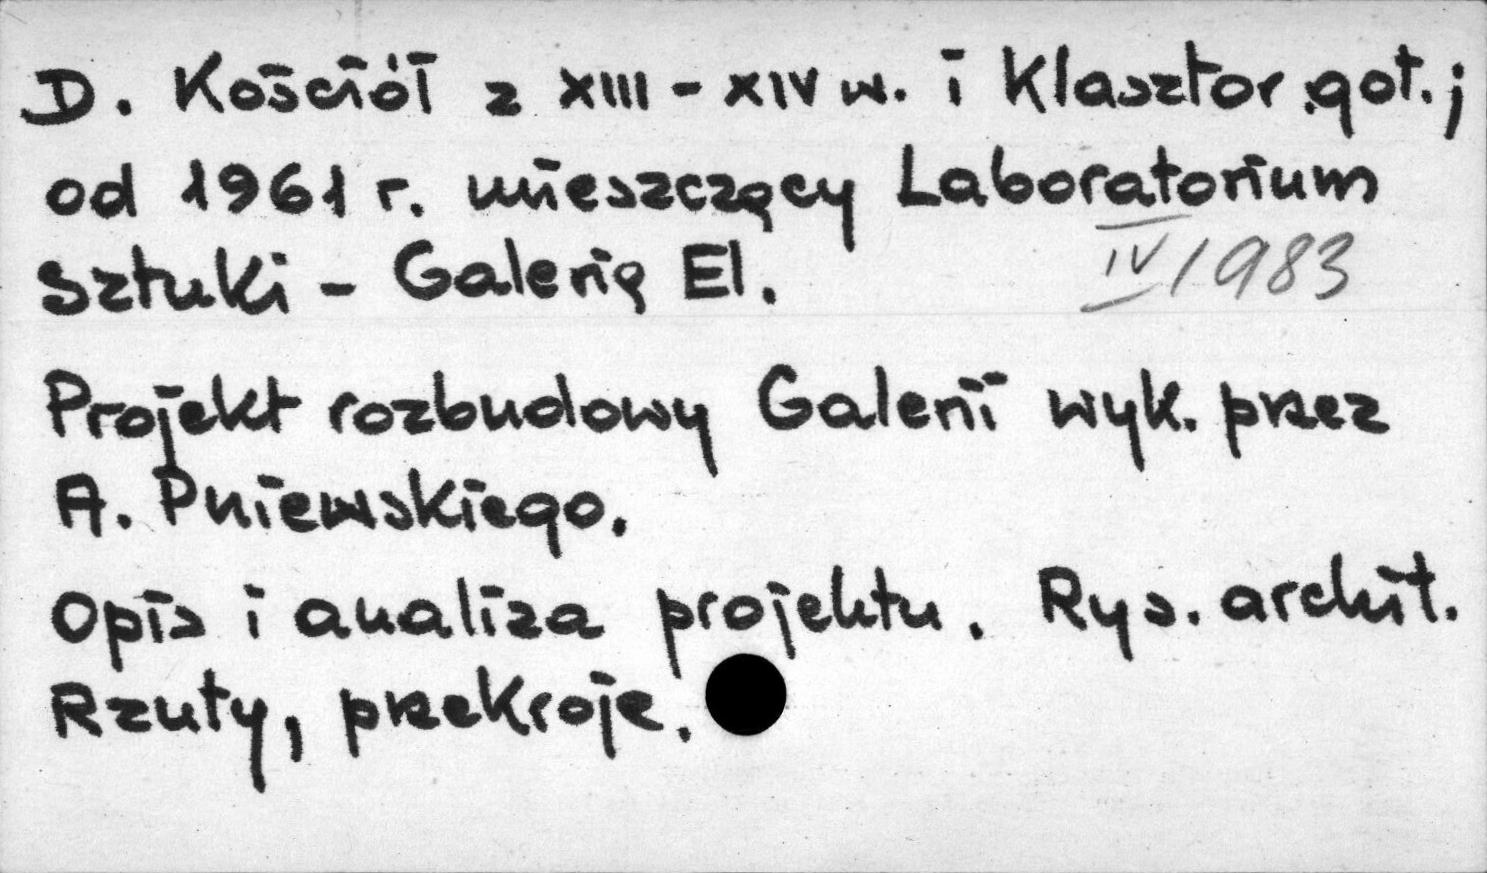 D. Kościół z XIII - XIV w. i Klasztor got.;
od 1961 r. mieszczący Laboratorium
Sztuki - Galerię El.
IV/1983
Projekt rozbudowy Galerii wyk. przez
A. Pniewskiego.
Opis i analiza projektu. Rys. archit.
Rzuty, przekroje.